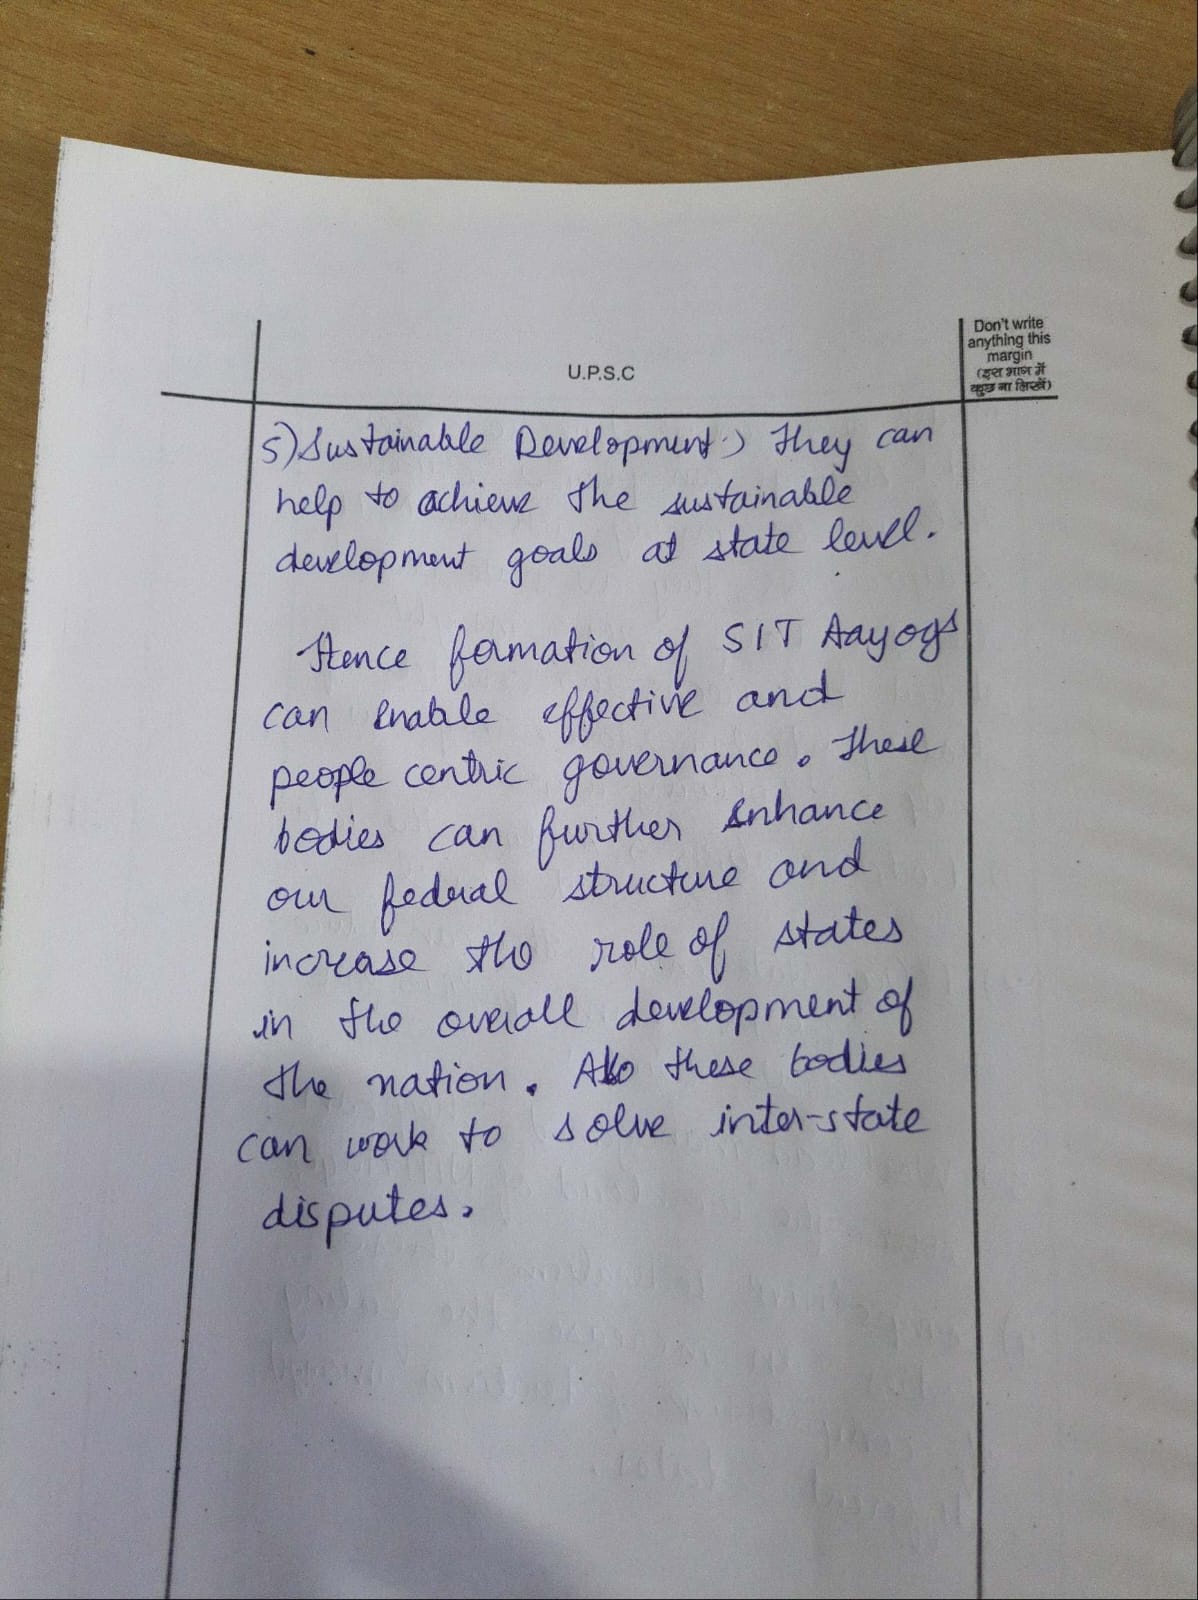 U.P.S.C
Don't write
anything this
margin
(इस भाग में
कुछ ना लिखें)
5) Sustainable Development:) They can
help to achieve the sustainable
development goals at state level.
Hence formation of SIT Aayogs
can enable effective and
people centric governance. These
bodies can further enhance
our federal structure and
increase the role of states
in the overall development of
the nation. Also these bodies
can work to solve inter-state
disputes.